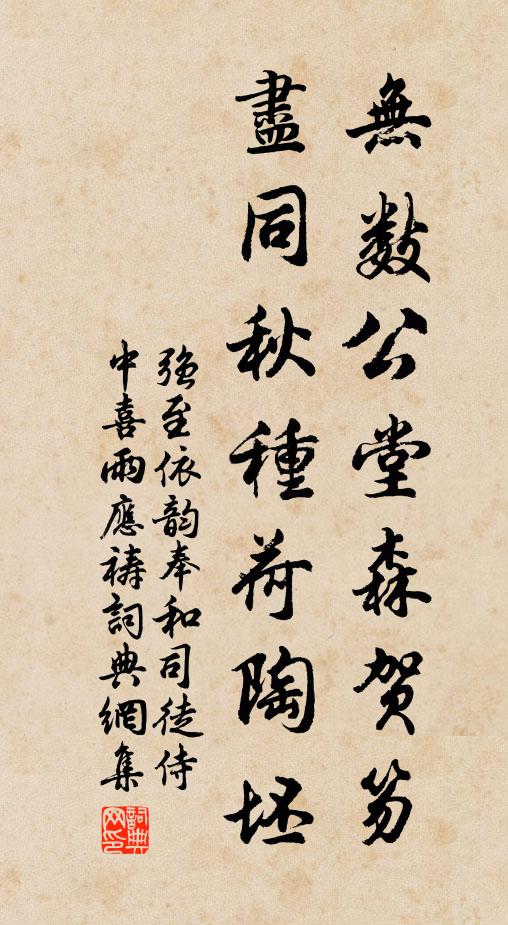 無數公堂森賀笏
盡同秋種荷陶坯
強至依韵奉和司徒侍
中喜雨應禱詞典網集
詞典网印